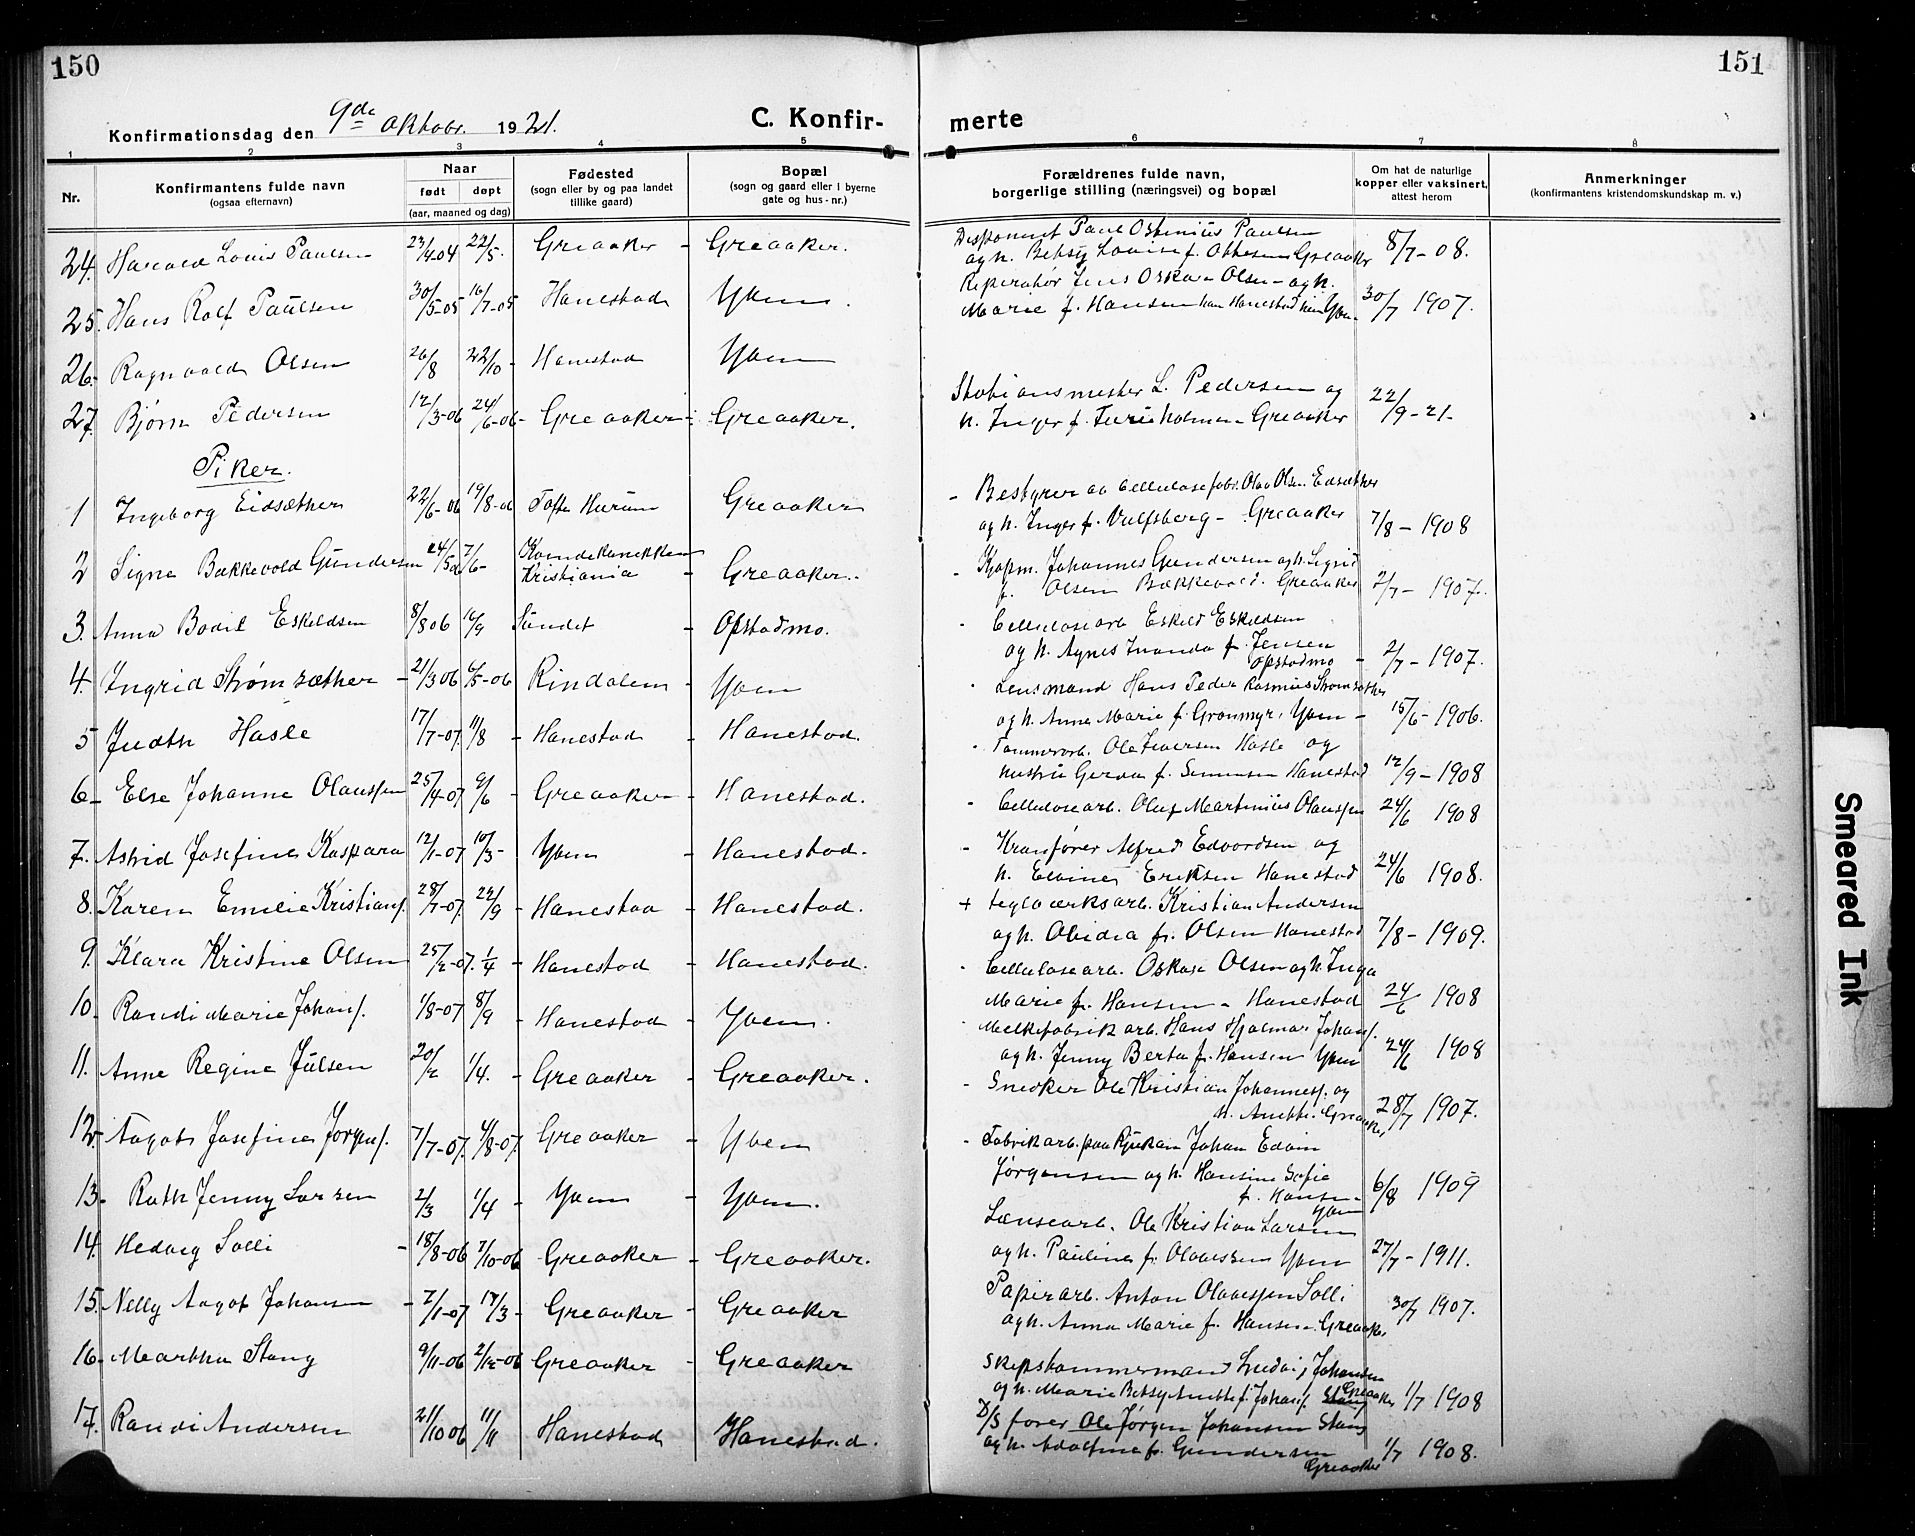 150
Konfirmationsdag den 9de oktobr. 1921.
C. Konfir-
1 2 3 4 5
Nr.
Konfirmantens fulde navn
(ogsaa efternavn)
Naar
født døpt
(aar, maaned og dag)
Fødested
(sogn eller by og paa landet
tillike gaard)
Bopæl
(sogn og gaard eller i byerne
gate og hus-nr.)
24. Harald Louis Paulsen 23/4-04 22/5. Greaaker - Greaaker.
25. Hans Rolf Paulsen 30/5-05 16/7-05 Hanestad Yven.
26. Ragnvald Olsen 26/8 22/10 - Hanestad Yven
27. Bjørn Pedersen 12/3-06 24/6-06 - Greaaker - Greaaker.
Piker.
1 Ingeborg Eidsæther 22/6-06 19/8-06 Tofte Hurum Greaaker
2 Signe Bakkevold Gundersen 24/5 7/6- Kristiania - Greaaker.
3. Anna Bodil Eskeldsen 8/8 06 16/9 Sundet - Opstadmo.
4. Ingrid Strømsæther - 21/3 06 6/5-06 Rindalen - Yven
5 Judth Hasle 17/7-07. 11/8 - Hanestad - Hanestad.
6- Else Johanne Olaussen 25/4-07 9/6 - Greaaker - Hanestad.
7. Astrid Josefine Kaspara 12/1-07 10/3- Yven - Hanestad.
8. Karen Emilie Kristians. 28/7-07. 22/9 - Hanestad - Hanestad.
9. Klara Kristine Olsen 25/2-07. 1/4 - Hanestad - Hanestad.
10. Randi Marie Johans. 1/8-07 8/9 - Hanestad - Yven.
11. Anne Regine Julsen 20/2 1/4. - Greaaker - Greaaker.
12. Aagot Josefine Jørgens. 7/7-07. 4/8-07. Greaaker - Yven
13. Ruth Jenny Larsen 2/3 1/4 - Yven - Yven.
14. Hedvig Solli - 18/8-06 7/10-06 Greaaker - Greaaker.
15. Nelly Aagot Johansen - 2/1-07 17/3- Greaaker - Greaaker
16. Martha Stang 9/11-06 2/12-06 Greaaker - Greaaker
17. Randi Andersen 21/10 06 11/11 Hanestad - Hanestad.
151
merte
6 7 8
Forældrenes fulde navn,
borgerlige stilling (næringsvei) og bopæl
Om hat de naturlige
kopper eller vaksinert,
attest herom
Anmerkninger
(konfirmantens kristendomskundskap m. v.)
Disponent Paul Ostinius Paulsen
og h. Betsy Louise f. Ottesen Greaaker 8/7-08.
Reperatør Jens Oskar Olsen - og h.
Marie f. Hansen han Hanestad hun Yven. 30/7 1907.
Stationsmester L. Pedersen og
h. Inger f. Furuholmen - Greaaker 22/9-21-
- Bestyrer av Cellulosefabr. Olav Olsen Eidsæther
og h. Inger f. Vulfsberg - Greaaker 7/8-1908
- Kjøpm. Johannes Gundersen og h. Sigrid
f. Olsen Bakkevold. Greaaker 2/7-1907.
- Cellulosearb Eskeld Eskeldsen
og h. Agnes f. Jensen
Opstadmo - 2/7-1907.
- Lensmand Hans Peder Rasmus Strømsæther
og h. Anna Marie f. Grønmyr, Yven - 15/6-1906.
- Tømmerarb. Ole Iversen Hasle og
hustru Gerda f. Simensen Hanestad 12/9-1908
- Cellulosearb. Oluf Martinius Olaussen 24/6 1908
- Kranfører Alfred Edvardsen og
h. Elvine Eriksen Hanestad 24/6 1908.
+ teglværksarb. Kristian Andersen
og h. Olidia f. Olsen Hanestad 7/8-1909.
- Cellulosearb. Oskar Olsen og h. Inga
Marie f. Hansen - Hanestad 24/6 1908
- Melkefabrikarb. Hans Hjalmar Johans.
og h. Jenny Berta f. Hansen Yven 24/6 1908
- Snedker Ole Kristian Johannes. og
h. Anette. Greaaker 28/7 1907.
- Fabrikarb. paa Rjukan Johan Edvin
Jørgensen og h. Hansine Sofie
f. Hansen - Yven 6/8 1909
Lænsearb. Ole Kristian Larsen
og h. Pauline f. Olaussen Yven 27/7-1911.
Papirarb. Anton Olaussen Solli
og h. Anna Marie f. Hansen. Greaaker 30/7 1907.
Skipstømmermand Ludvig Johansen
og h. Marie Betsy Anette f. Johans. Stang Greaaker 1/7 1908
D/S fører Ole Jørgen Johansen Stang
og h. Adolfine f. Gundersen 1/7 1908.
Greaaker
Smeared Ink